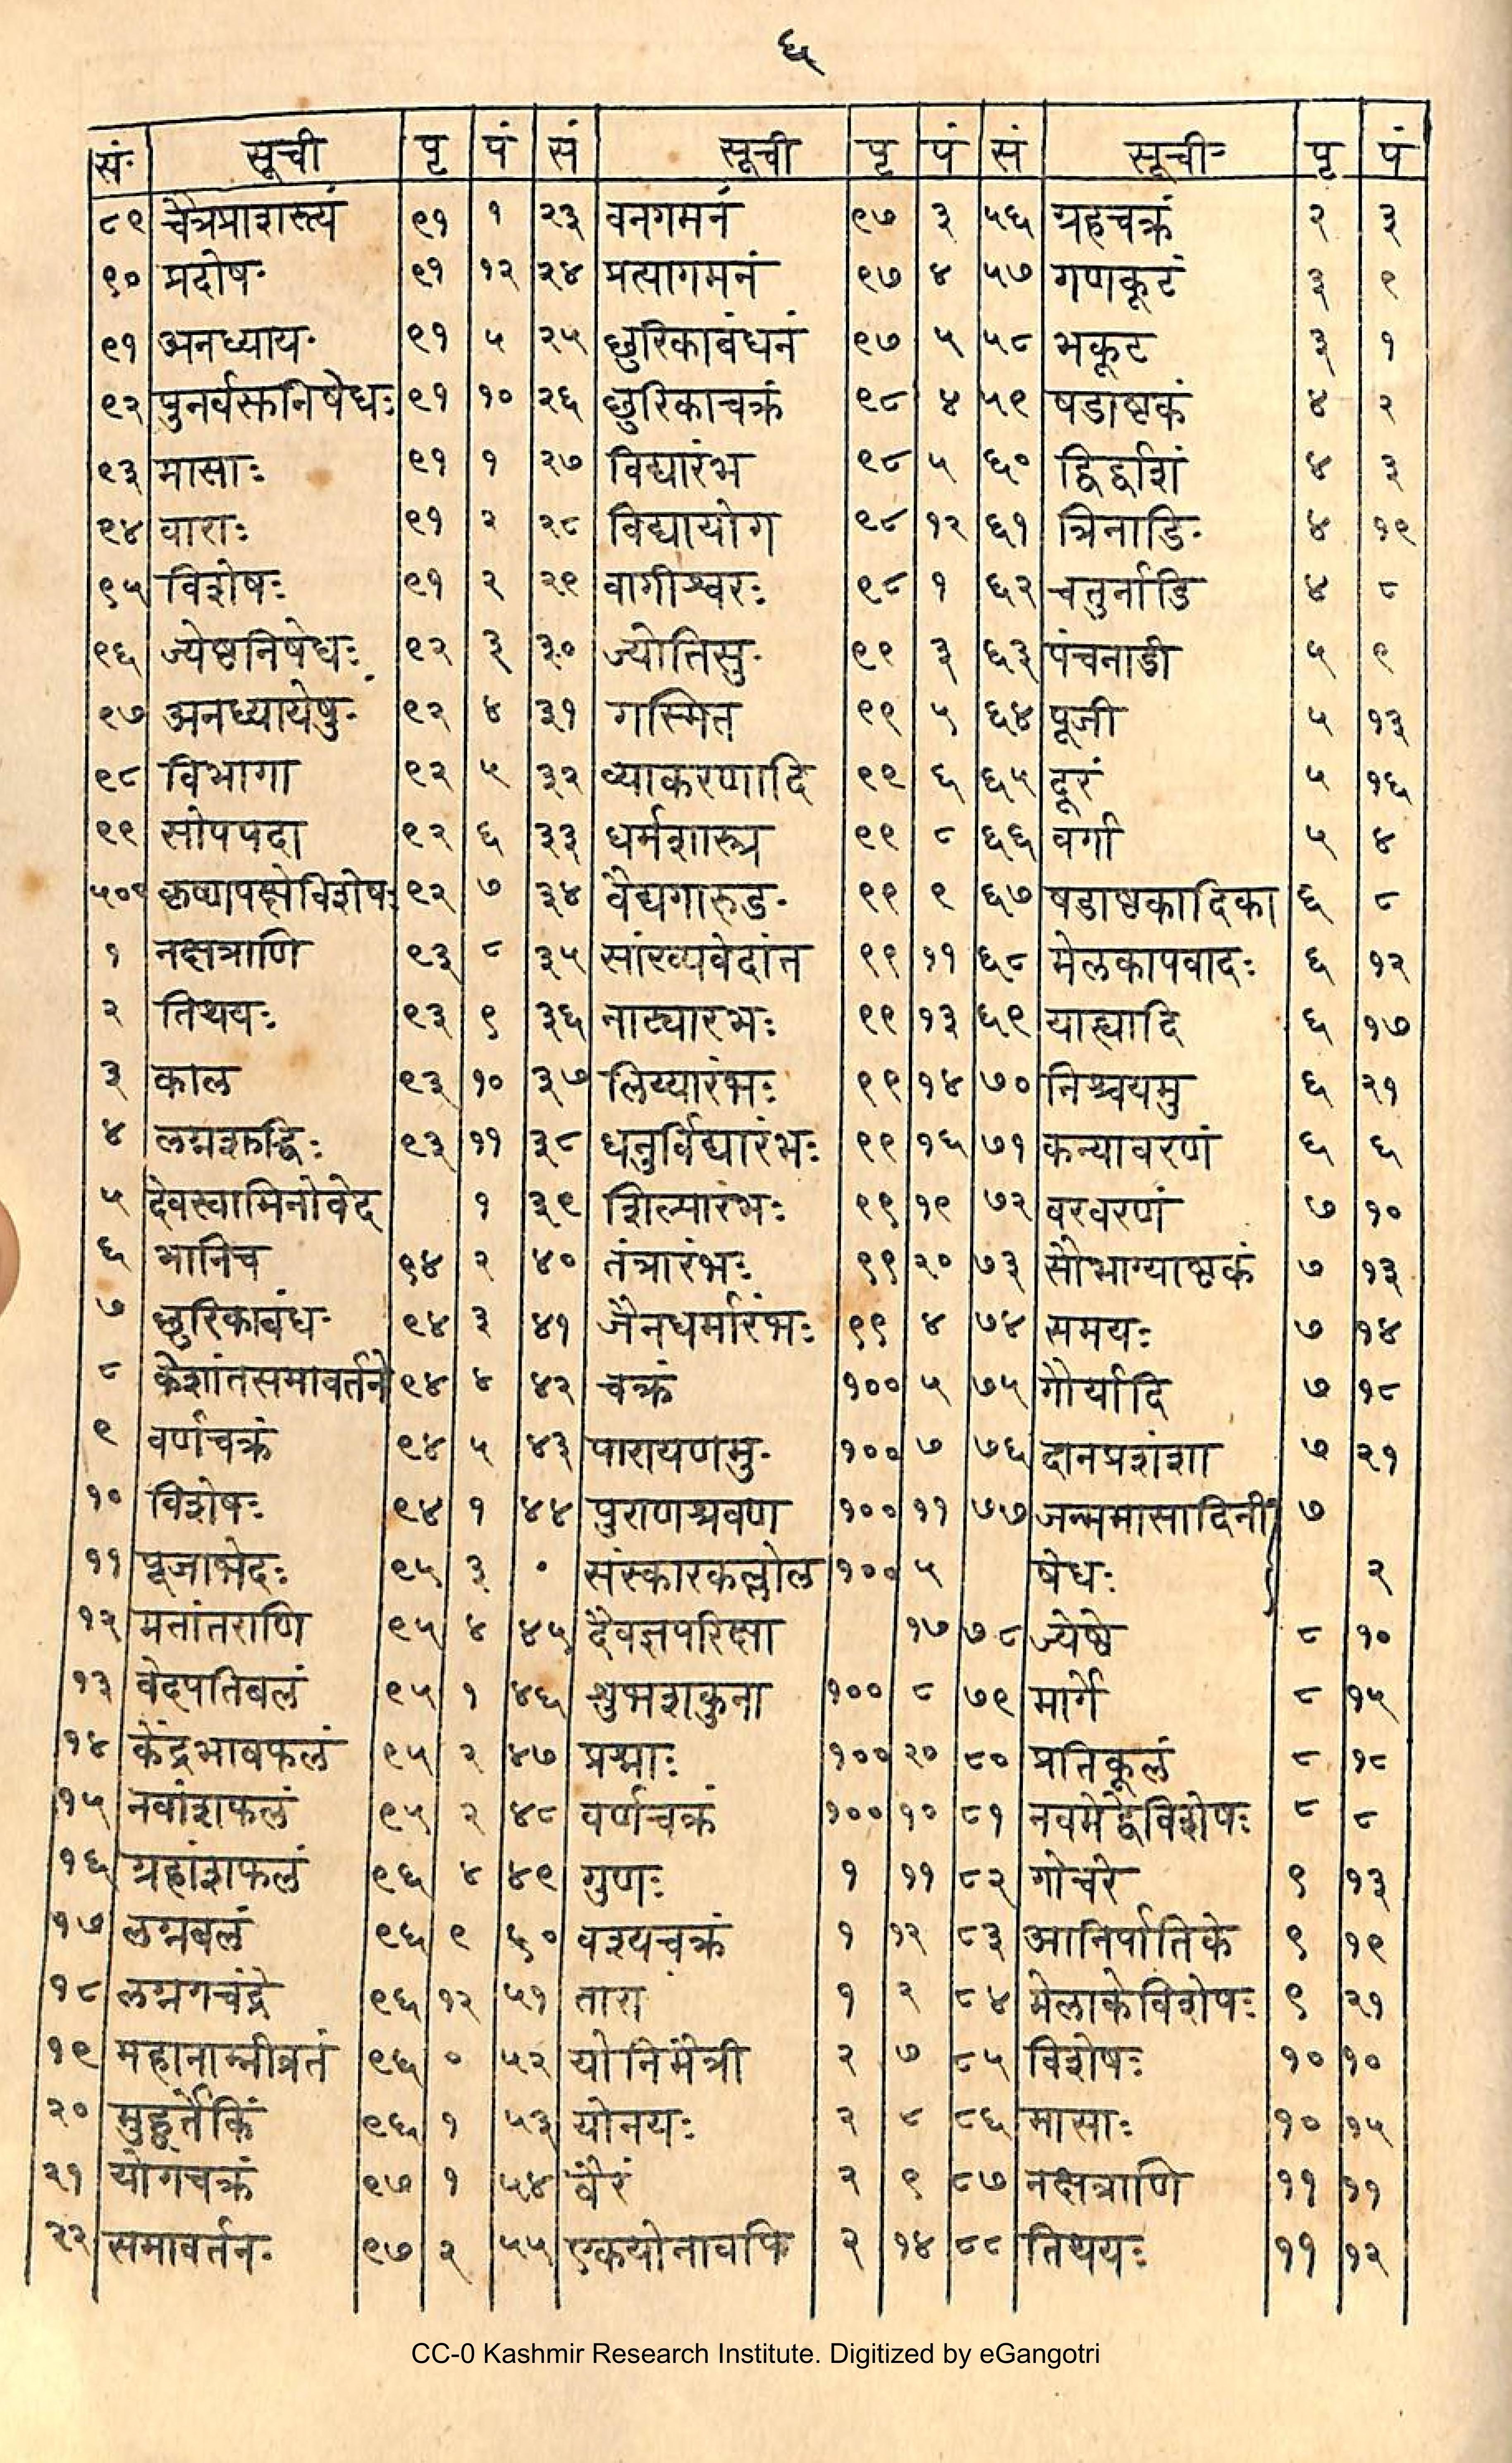 ६
सं॰ सूची पृ पं सं सूची पृ पं सं सूची॰ पृ पं
८९ चैत्रप्राशस्त्यं ९१ १ २३ वनगमनं ९७ ३ ५६ ग्रहचक्रं २ ३
९० प्रदोषः ९१ १२ २४ प्रत्यागमनं ९७ ४ ५७ गणकूटं ३ ९
९१ अनध्याय॰ ९१ ५ २५ छुरिकाबंधनं ९७ ५ ५८ भकूट ३ १
९२ पुनर्वसुक्तनिषेधः ९१ १० २६ छुरिकाचक्रं ९८ ४ ५९ षडाष्टकं ४ २
९३ मासाः ९१ १ २७ विद्यारंभ ९८ ५ ६० द्विर्द्वाशं ४ ३
९४ वाराः ९१ २ २८ विद्यायोग ९८ १२ ६१ त्रिनाडि॰ ४ १९
९५ विशेषः ९१ २ २९ वागीश्वरः ९८ १ ६२ चतुर्नाडि ४ ८
९६ ज्येष्ठनिषेधः ९२ ३ ३० ज्योतिसु॰ ९९ ३ ६३ पंचनाडी ५ ९
९७ अनध्यायेषु॰ ९२ ४ ३१ गस्मित ९९ ५ ६४ पूजी ५ १३
९८ विभागा ९२ ५ ३२ व्याकरणादि ९९ ६ ६५ दूरं ५ १६
९९ सोपपदा ९२ ६ ३३ धर्मशास्त्र ९९ ८ ६६ वर्गा ५ ४
५०० कृष्णपक्षेविशेषः ९२ ७ ३४ वैद्यगारुड॰ ९९ ९ ६७ षडाष्ठकादिका ६ ८
१ नक्षत्राणि ९३ ८ ३५ सांख्यवेदांत ९९ ११ ६८ मेलकापवादः ६ १२
२ तिथयः ९३ ९ ३६ नाट्यारभः ९९ १३ ६९ याह्यादि ६ १७
३ काल ९३ १० ३७ लिप्यारंभः ९९ १४ ७० निश्चयमु ६ २१
४ लग्नशुद्धिः ९३ ११ ३८ धनुर्विद्यारंभः ९९ १६ ७१ कन्यावरणं ६ ६
५ देवस्वामिनोवेद १ ३९ शिल्पारंभः ९९ १९ ७२ वरवरणं ७ १०
६ भानिच ९४ २ ४० तंत्रारंभः ९९ २० ७३ सौभाग्याष्ठकं ७ १३
७ छुरिकाबंध॰ ९४ ३ ४१ जैनधर्मारंभः ९९ ४ ७४ समयः ७ १४
८ केशांतसमावर्तने ९४ ४ ४२ चक्रं १०० ५ ७५ गौर्यादि ७ १८
९ वर्णचक्रं ९४ ५ ४३ पारायणमु॰ १०० ७ ७६ दानप्रशंशा ७ २१
१० विशेषः ९४ १ ४४ पुराणश्रवण १०० ११ ७७ जन्ममासादिनी ७
११ पूजाभेदः ९५ ३ ० संस्कारकल्लोल १०० ५ षेधः २
१२ मतांतराणि ९५ ४ ४५ दैवज्ञपरिक्षा १७ ७८ ज्येष्ठे ८ १०
१३ वेदपतिबलं ९५ १ ४६ शुभशकुना १०० ८ ७९ मार्गे ८ १५
१४ केंद्रभावफलं ९५ २ ४७ प्रश्नाः १०० २० ८० प्रतिकूलं ८ १८
१५ नवांशफलं ९५ २ ४८ वर्णचक्रं १०० १० ८१ नवमेद्वेविशेषः ८ ८
१६ ग्रहांशफलं ९६ ४ ४९ गुणः १ ११ ८२ गोचरे ९ १३
१७ लग्नबलं ९६ ९ ५० वश्यचक्रं १ १२ ८३ आनिर्पातिके ९ १९
१८ लग्नगचंद्रे ९६ १२ ५१ तारा १ २ ८४ मेलाकेविशेषः ९ २१
१९ महानाम्नीव्रतं ९६ ० ५२ योनिमैत्री २ ७ ८५ विशेषः १० १०
२० मुहूर्तेकिं ९६ १ ५३ योनयः २ ८ ८६ मासाः १० १५
२१ योगचक्रं ९७ १ ५४ वैरं २ ९ ८७ नक्षत्राणि ११ ११
२२ समावर्तन॰ ९७ २ ५५ एकयोनावपि २ १४ ८८ तिथयः ११ १२
CC-0 Kashmir Research Institute. Digitized by eGangotri